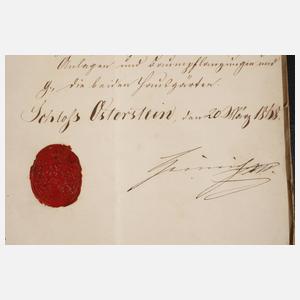 Anlagen und Baumpflanzungen und
g, die beiden Hausgärten.
Schloss Osterstein, den 20 März 1868.